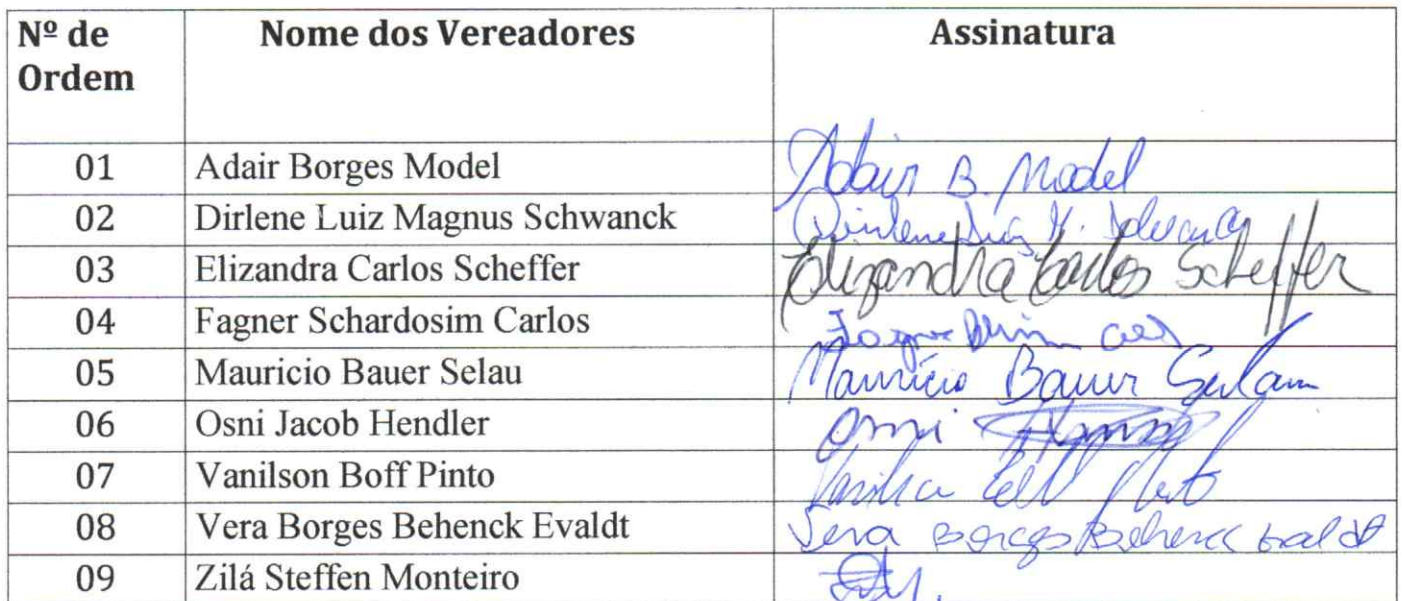 Nº de Ordem Nome dos Vereadores Assinatura
01 Adair Borges Model Adair B. Model
02 Dirlene Luiz Magnus Schwanck Dirlene Luiz M. Schwanck
03 Elizandra Carlos Scheffer Elizandra Carlos Scheffer
04 Fagner Schardosim Carlos Fagner
05 Mauricio Bauer Selau Maurício Bauer Selau
06 Osni Jacob Hendler Osni
07 Vanilson Boff Pinto
08 Vera Borges Behenck Evaldt Vera Borges Behenck Evaldt
09 Zilá Steffen Monteiro